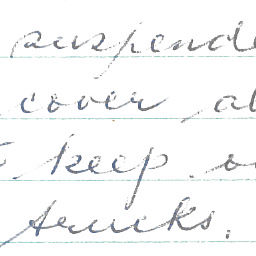 suspende
cover al
keep on
trucks.